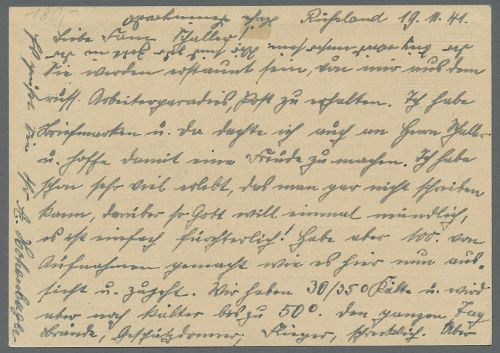 Rußland 19.11.41.
Liebe Fam. Schaller!
Sie werden erstaunt sein, von mir aus dem
russ. Arbeiterparadies, Post zu erhalten. Ich habe
Briefmarken u. da dachte ich auch an Herrn Schaller
u. hoffe damit eine Freude zu machen. Ich habe
schon sehr viel erlebt, das man gar nicht schreiben
kann, darüber so Gott will einmal mündlich,
es ist einfach fürchterlich! Habe aber 100. von
Aufnahmen gemacht wie es hier nun aus-
sieht u. zugeht. Wir haben 30/35° Kälte u. wird
aber noch kälter bis zu 50°. Den ganzen Tag
Brände, Geschützdonner, Flieger, schrecklich. Aber